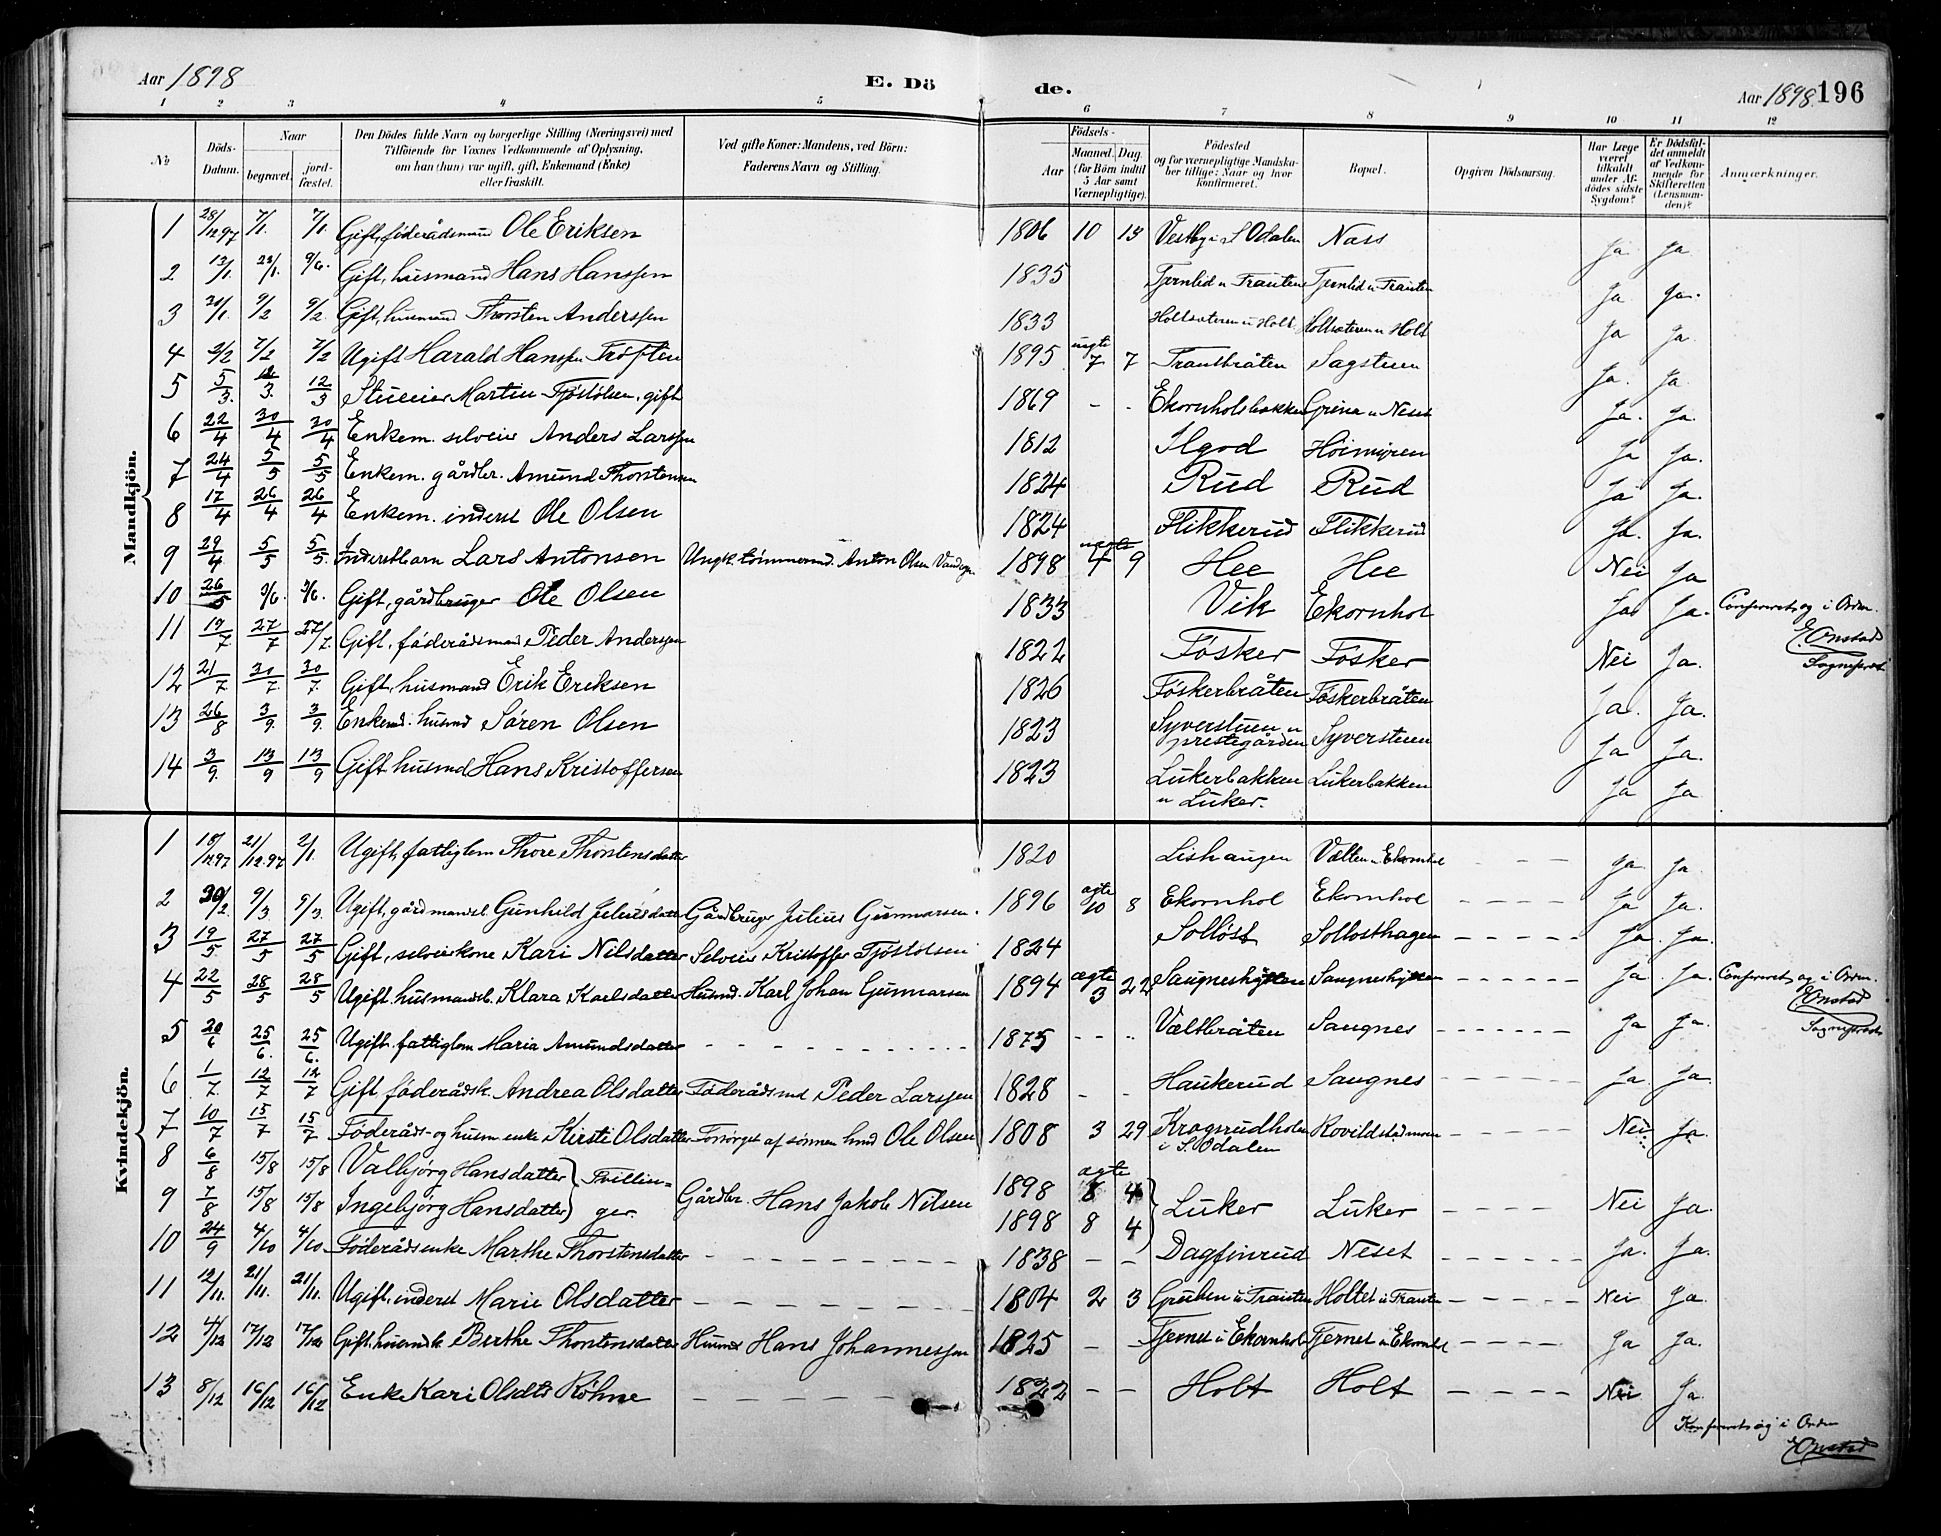 Aar 1898 E. Dö de. Aar 1898. 196
1 2 3 4 5 6 7 8 9 10 11 12
No Döds-Datum. Naar begravet. jord-fæstet. Den Dödes fulde Navn og borgerlige Stilling (Næringsvei) med Tilföiende for Voxnes Vedkommende af Oplysning, om han (hun) var ugift, gift, Enkemand (Enke) eller fraskilt. Ved gifte Koner: Mandens, ved Börn: Faderens Navn og Stilling. Födsels- Aar Maaned. Dag. (for Börn indtil 5 Aar samt Værnepligtige). Födested og for værnepligtige Mandskaber tillige: Naar og hvor konfirmeret. Bopæl. Opgiven Dödsaarsag. Har Læge været tilkaldt under Afdödes sidste Sygdom? Er Dödsfaldet anmeldt af Vedkommende for Skifteretten (Lensmanden)? Anmærkninger.
Mandkjön.
1 28/12 97 7/1. 7/1. Gift, föderådsmand Ole Eriksen 1806 10 13 Vestby i S Odalen Nass Ja Ja
2 13/1. 23/1. 9/6. Gift, husmand Hans Hanssen 1835 Tjernlid u Trauten Tjernlid u Trauten Ja Ja.
3 30/1. 9/2 9/2. Gift, husmand Thorsten Anderssen 1833 Holtsæteren u Holt Holtsæteren u Holt Ja Ja.
4 2/2 7/2 7/2 Ugift Harald Hanssen Trøften 1895 ægte 7 7 Trautbråten Sagstuen Ja. Ja.
5 5/3. 12/3. 12/3 Stueeier Martin Fjøstølsen, gift 1869 - - Ekornholsbakken Grina u Neset Ja. Ja.
6 22/4 30/4 30/4 Enkem. selveier Anders Larssen 1812 Ilgod Höimyren Ja Ja.
7 24/4 5/5 5/5 Enkem. gårdbr. Amund Thorstensen 1824 Rud Rud Ja Ja.
8 17/4 26/4 26/4 Enkem. inderst Ole Olsen 1824 Flikkerud Flikkerud Ja. Ja.
9 29/4. 5/5 5/5. Inderstbarn Lars Antonsen Ungk. tömmermd. Anton Olsen 1898 uægte 4 9 Hee Hee Nei Ja
10 26/5 3/6. 3/6. Gift, gårdbruger Ole Olsen 1833 Vik Ekornhol Ja Ja. Confereret og i Orden.
11 19/7 27/7 27/7. Gift, föderådsmand Peder Anderssen 1822 Føsker Føsker Nei Ja. E. Onstad Sogneprest
12 21/7 30/7. 30/7. Gift, husmand Erik Eriksen 1826 Føskerbråten Føskerbråten Ja. Ja.
13 26/8 3/9. 3/9. Enkemd. husmd Søren Olsen 1823 Syverstuen u prestegården Syverstuen Ja Ja.
14 3/9. 13/9 13/9 Gift husmd Hans Kristoffersen 1823 Lukerbakken u Luker. Lukerbakken Ja Ja
Kvindekjön.
1 18/12 97 21/12.97 2/1. Ugift, fattiglem Thore Thorstensdatter 1820 Lishaugen Vælten u Ekornhol - - - - Ja Ja.
2 30/2. 9/3 9/3. Ugift, gårdmandsd. Gunhild Juliusdatter Gårdbruger Julius Gunnarsen. 1896 ægte 10 8 Ekornhol Ekornhol - - - - Ja Ja.
3 19/5. 27/5 27/5 Gift, selveierkone Kari Nilsdatter Selveier Kristoffer Fjøstolsen 1824 Solløst Solløsthagen - - - - Ja. Ja.
4 22/5 28/5 28/5 Ugift husmandsb. Klara Karlsdatter Husmd. Karl Johan Gunnarsen 1894 ægte 3 22 Saugneshytten Saugneshytten - - - - Ja. Ja. Confereret og i Orden. E. Onstad Sogneprest
5 20/6 25/6. 25/6. Ugift. fattiglem Maria Amundsdatter - - - - - - 1875 - - - Væltbråten Saugnes - - - - Ja Ja.
6 1/7. 12/7 12/7 Gift föderådsk. Andrea Olsdatter Föderådsmd Peder Larssen 1828 - - Haukerud Saugnes - - - - Ja. Ja.
7 10/7 15/7 15/7 Föderåds- og husm.enke Kirsti Olsdatter Forsörget af sönnen hmd Ole Olsen 1808 3 29 Krogsrudholen i S. Odalen Rovildstadmoen - - - - Nei Ja.
8 6/8 15/8 15/8 Valbjørg Hansdatter } Tvillin- 1898 ægte 8 4
9 7/8 15/8 15/8 Ingebjørg Hansdatter } ger. Gårdbr. Hans Jakob Nilsen 1898 8 4 } Luker Luker - - - - Nei Ja.
10 24/9 4/10 4/10 Föderådsenke Marthe Thorstensdatter - - - - - - 1838 - - Dagfinrud Neset - - - - Ja. Ja.
11 12/11. 21/11. 21/11. Ugift, inderst Marie Olsdatter - - - - - - 1804 2 3 Gruben u Trauten Holtet u Trauten - - - - Nei Ja.
12 4/12 17/12 17/12 Gift, husmdk. Berthe Thorstensdatter Husmd Hans Johannessen 1825 - - Tjernet u Ekornhol Tjernet u Ekornhol - - - - Ja Ja.
13 8/12 16/12 16/12 Enke Kari Olsdtr Röhne 1822 - - Holt Holt - - - - Nei Ja.
Konfereret og i Orden
E Onstad